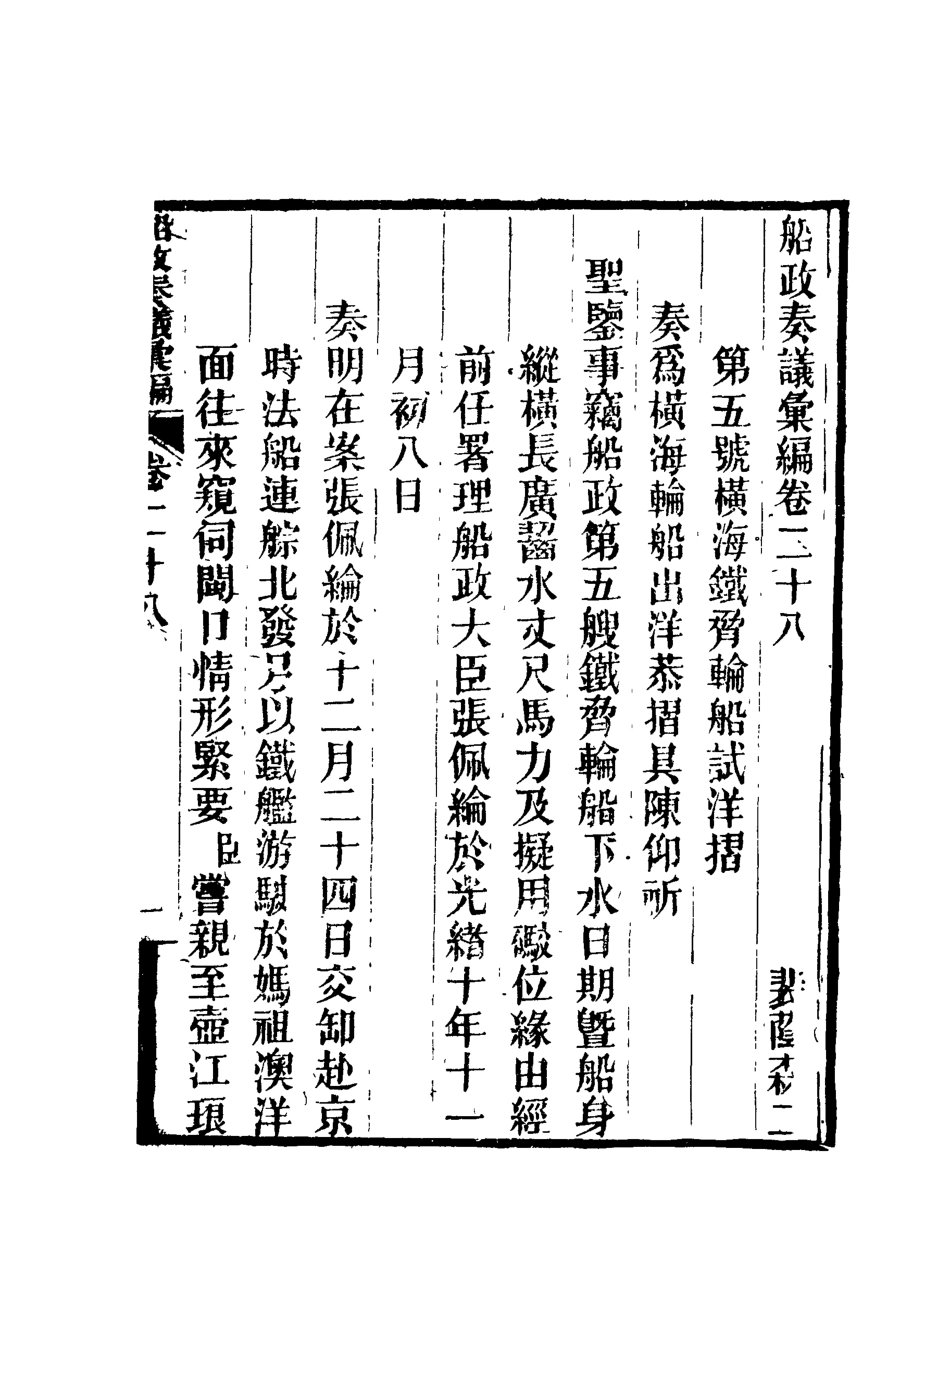 船政奏議彙編卷二十八
裴蔭森二
第五號橫海鐵脅輪船試洋摺
奏爲橫海輪船出洋恭摺具陳仰祈
聖鑒事竊船政第五艘鐵脅輪船下水日期曁船身
縱橫長廣齧水丈尺馬力及擬用礮位緣由經
前任署理船政大臣張佩綸於光緖十年十一
月初八日
奏明在案張佩綸於十二月二十四日交卸赴京
時法船連䑸北發另以鐵艦游駛於媽祖澳洋
面往來窺伺閩口情形緊要臣嘗親至壺江琅
船政奏議彙編 卷二十八 一